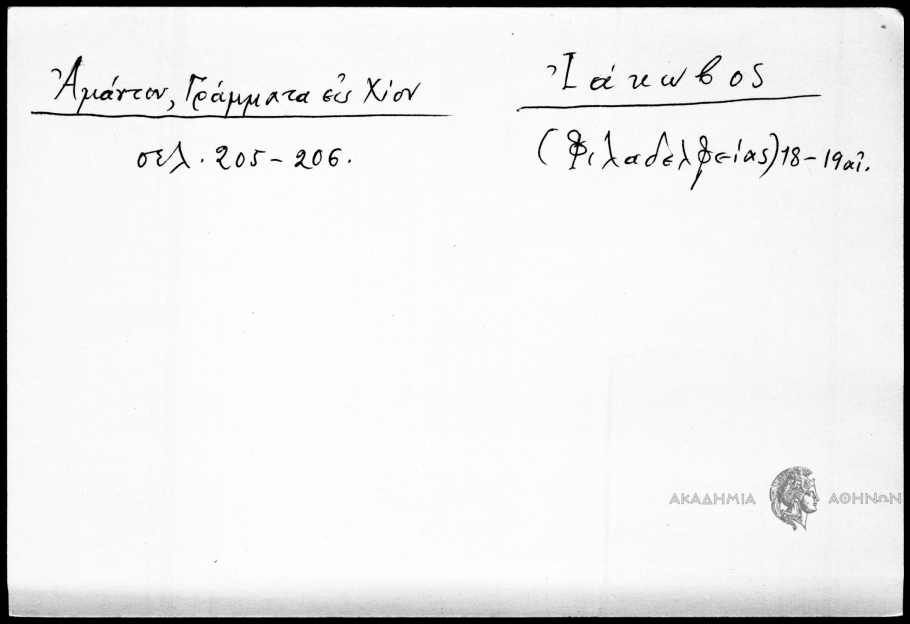 Ἀμάντου, Γράμματα εἰς Χίον
σελ. 205-206.
Ἰάκωβος
(Φιλαδελφείας) 18-19 αἰ.
ΑΚΑΔΗΜΙΑ ΑΘΗΝΩΝ